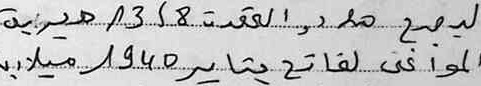 ليصبح دو القعدة 1358 هجرية
الموافق لفاتح يناير 1940 ميلادية